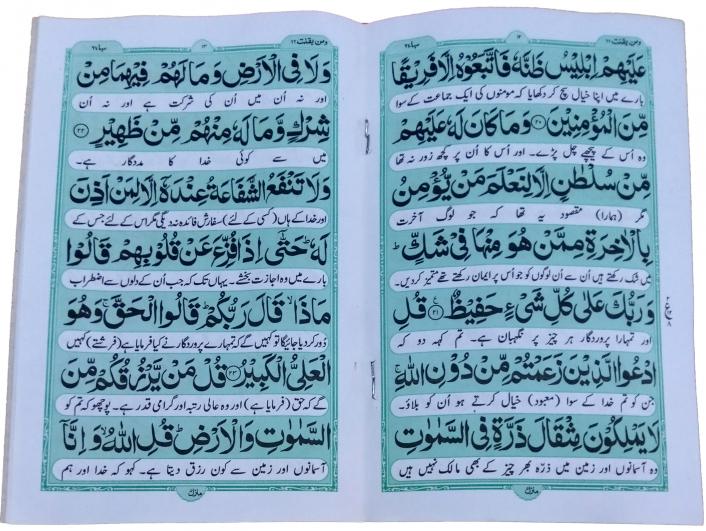 ومن یقنت ۲۲
۱۲
سبا ۳۴
عَلَيْهِمْ اِبْلِيْسُ ظَنَّهٗ فَاتَّبَعُوْهُ اِلَّا فَرِيْقًا
بارے میں اپنا خیال سچ کر دکھایا کہ مومنوں کی ایک جماعت کے سوا
مِّنَ الْمُؤْمِنِيْنَ ۲۰ وَمَا كَانَ لَهٗ عَلَيْهِمْ
وہ اُس کے پیچھے چل پڑے۔ اور اُس کا اُن پر کچھ زور نہ تھا
مِّنْ سُلْطٰنٍ اِلَّا لِنَعْلَمَ مَنْ يُّؤْمِنُ
مگر (ہمارا) مقصود یہ تھا کہ جو لوگ آخرت
بِالْاٰخِرَةِ مِمَّنْ هُوَ مِنْهَا فِيْ شَكٍّ ؕ
میں شک رکھتے ہیں اُن سے اُن لوگوں کو جو اُس پر ایمان رکھتے تھے متمیز کر دیں۔
وَرَبُّكَ عَلٰى كُلِّ شَيْءٍ حَفِيْظٌ ۲۱ قُلِ
اور تمہارا پروردگار ہر چیز پر نگہبان ہے۔ تم کہہ دو کہ
ادْعُوا الَّذِيْنَ زَعَمْتُمْ مِّنْ دُوْنِ اللّٰهِ ۚ
جن کو تم خدا کے سوا (معبود) خیال کرتے ہو اُن کو بلاؤ۔
لَا يَمْلِكُوْنَ مِثْقَالَ ذَرَّةٍ فِي السَّمٰوٰتِ
وہ آسمانوں اور زمین میں ذرّہ بھر چیز کے بھی مالک نہیں ہیں
منزل
ومن یقنت ۲۲
۱۳
سبا ۳۴
وَلَا فِي الْاَرْضِ وَمَا لَهُمْ فِيْهِمَا مِنْ
اور نہ اُن میں اُن کی شرکت ہے اور نہ اُن
شِرْكٍ وَّمَا لَهٗ مِنْهُمْ مِّنْ ظَهِيْرٍ ۲۲
میں سے کوئی خدا کا مددگار ہے۔
وَلَا تَنْفَعُ الشَّفَاعَةُ عِنْدَهٗٓ اِلَّا لِمَنْ اَذِنَ
اور خدا کے ہاں (کسی کے لئے) سفارش فائدہ نہ دیگی مگر اُس کے لئے جس کے
لَهٗ ؕ حَتّٰٓى اِذَا فُزِّعَ عَنْ قُلُوْبِهِمْ قَالُوْا
بارے میں وہ اجازت بخشے۔ یہاں تک کہ جب اُن کے دلوں سے اضطراب
مَاذَا ۙ قَالَ رَبُّكُمْ ؕ قَالُوا الْحَقَّ ۚ وَهُوَ
دُور کر دیا جائیگا تو کہیں گے کہ تمہارے پروردگار نے کیا فرمایا ہے (فرشتے) کہیں
الْعَلِيُّ الْكَبِيْرُ ۲۳ قُلْ مَنْ يَّرْزُقُكُمْ مِّنَ
گے کہ حق (فرمایا ہے) اور وہ عالی رتبہ اور گرامی قدر ہے۔ پوچھو کہ تم کو
السَّمٰوٰتِ وَالْاَرْضِ ؕ قُلِ اللّٰهُ ۙ وَاِنَّآ
آسمانوں اور زمین سے کون رزق دیتا ہے۔ کہو کہ خدا اور ہم
منزل